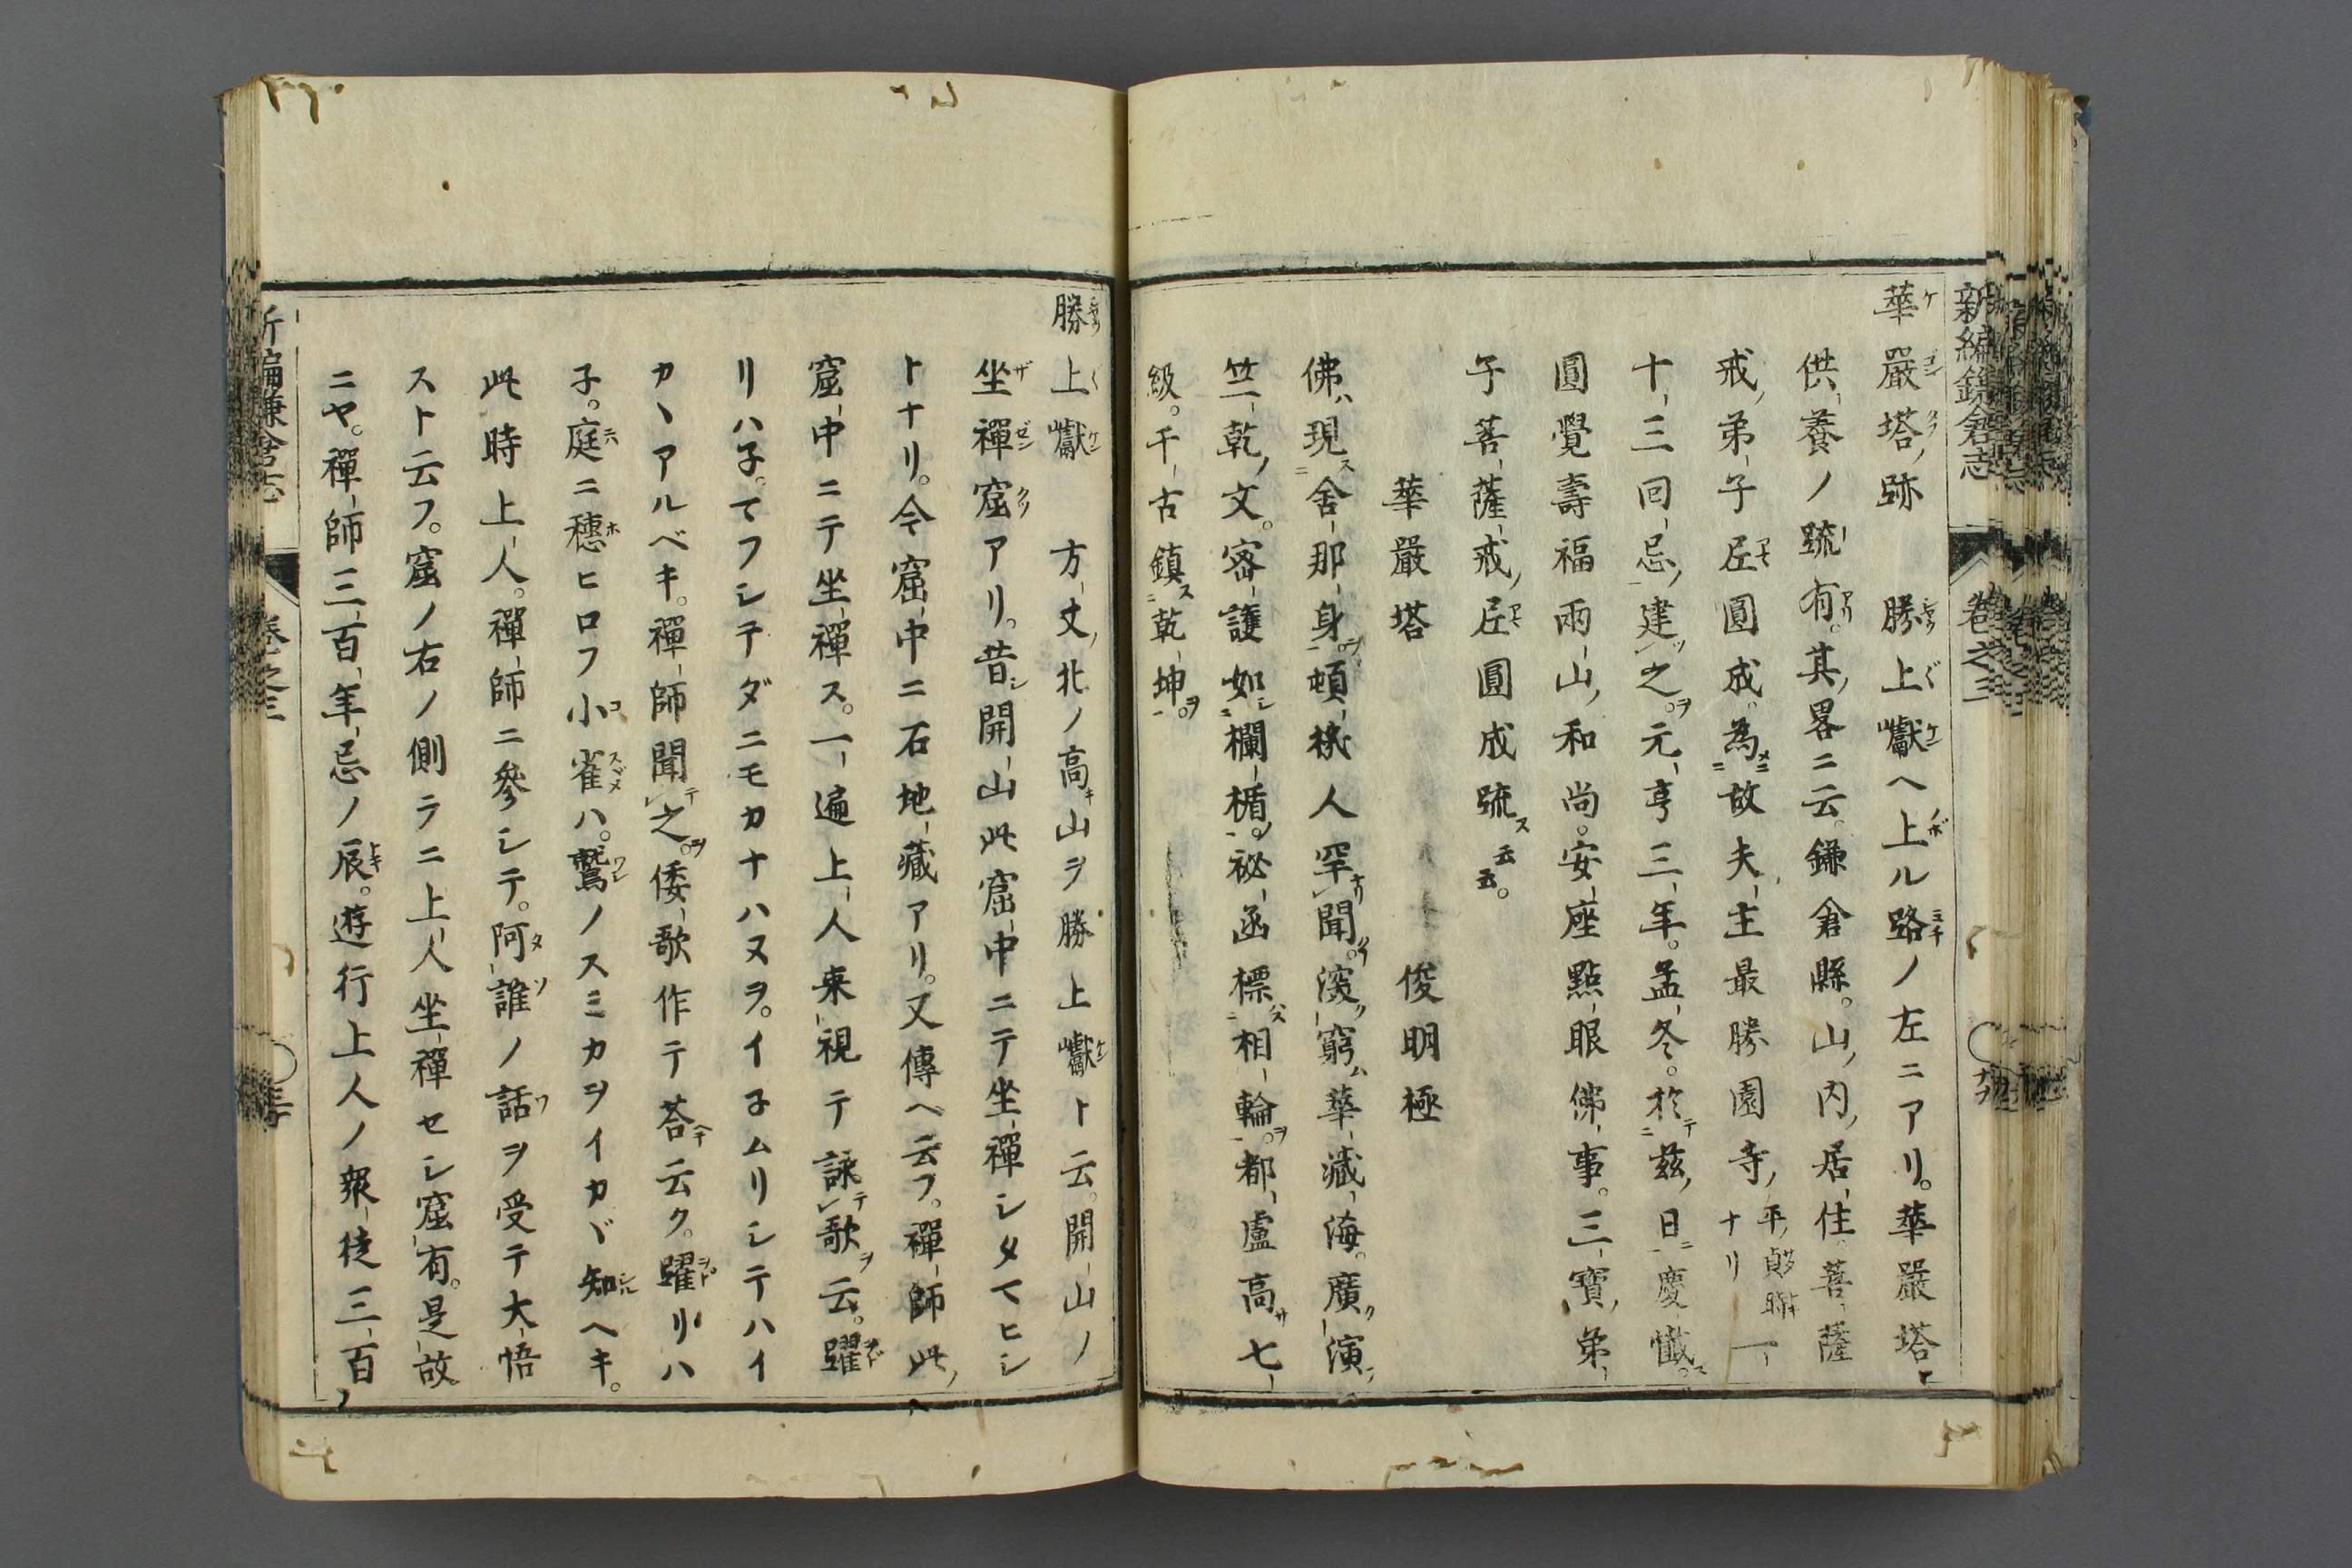 新編鎌倉志 卷之三
華嚴塔跡 勝上巘ヘ上ル路ノ左ニアリ。華嚴塔
供養ノ疏有。其畧ニ云。鎌倉縣。山内居住菩薩
戒弟子尼圓成。為故夫主最勝園寺 平貞時ナリ 一
十三回忌建之。元亨三年。孟冬。於玆日慶懺。
圓覺壽福兩山和尚。安座點眼佛事。三寶弟
子菩薩戒尼圓成疏 云云。
華嚴塔 俊明極
佛現舍那身頓機人罕聞。深窮華藏海。廣演
竺乾文。密護如欄楯。祕函標相輪。都盧高七
級。千古鎮乾坤。
勝上巘 方丈北ノ高山ヲ勝上巘ト云。開山ノ
坐禪窟アリ。昔開山此窟中ニテ坐禪シタマヒシ
トナリ。今窟中ニ石地藏アリ。又傳ヘ云フ。禪師此
窟中ニテ坐禪ス。一遍上人来視テ詠歌云。躍
リハ子。てフシテダニモカナハヌヲ。イ子ムリシテハイ
カヽアルベキ。禪師聞之。倭歌作テ荅云ク。躍リハ
子。庭ニ穗ヒロフ小雀ハ。鷲ノスミカヲイカヾ知ヘキ。
此時上人。禪師ニ參シテ。阿誰ノ話ヲ受テ大悟
スト云フ。窟ノ右ノ側ラニ上人坐禪セシ窟有。是故
ニヤ。禪師三百年忌ノ辰。遊行上人ノ衆徒三百
新編鎌倉志 卷之三